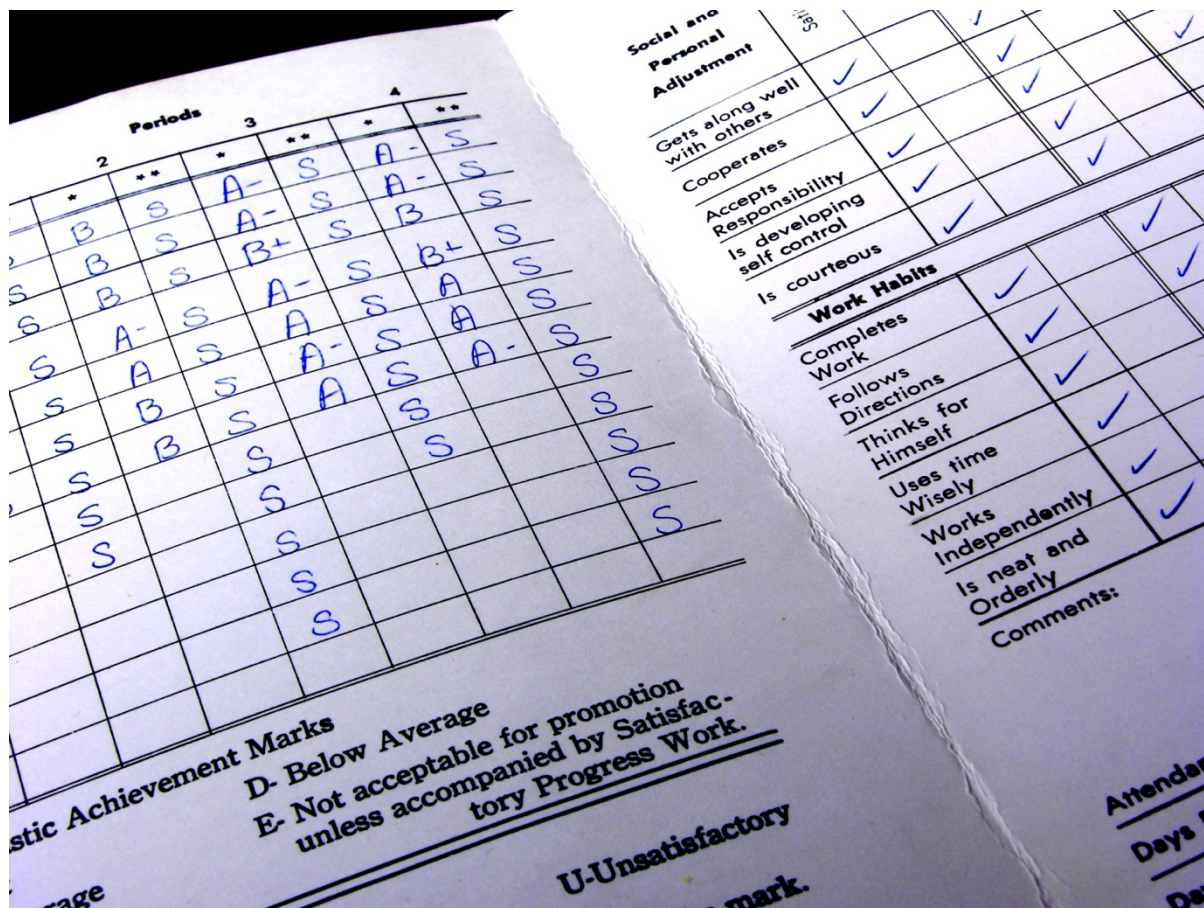 Periods
2 3 4
* ** * ** * **
B S A- S A- S
B S A- S A- S
S B S B+ S B S
S A- S A- S B+ S
S A S A S A S
S B S A- S A S
S B S A S A- S
S S S S
S S S S
S S S
S S
S S
Achievement Marks
D- Below Average
E- Not acceptable for promotion
unless accompanied by Satisfac-
tory Progress Work.
U-Unsatisfactory
mark.
Social and
Personal
Adjustment
Gets along well
with others
Cooperates
Accepts
Responsibility
Is developing
self control
Is courteous
Work Habits
Completes
Work
Follows
Directions
Thinks for
Himself
Uses time
Wisely
Works
Independently
Is neat and
Orderly
Comments:
Days